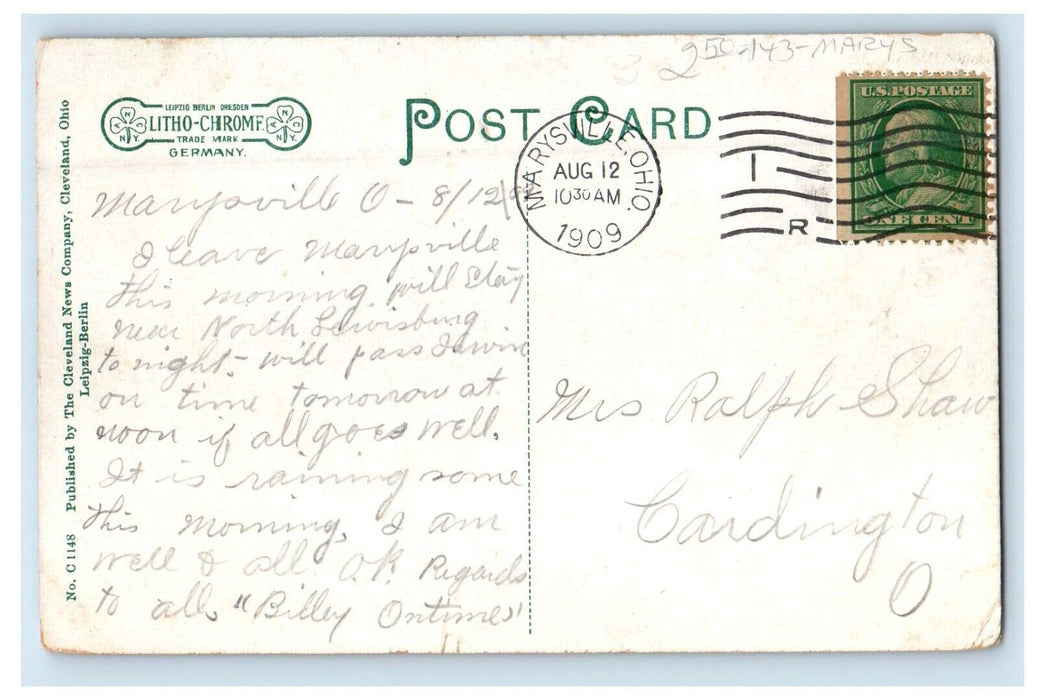 250-143-MARYS
LEIPZIG BERLIN DRESDEN
LITHO-CHROME
TRADE MARK
GERMANY.
N.Y.
N.Y.
POST CARD
MARYSVILLE, OHIO.
AUG 12
10 30 AM
1909
R
U.S. POSTAGE
ONE CENT
No. C 1148 Published by The Cleveland News Company, Cleveland, Ohio
Leipzig-Berlin
Marysville O - 8/12/09
I leave Marysville
this morning. will stay
near North Lewisburg
to night - will pass Irwin
on time tomorrow at
noon if all goes well.
It is raining some
this morning, I am
well & all O.K. Regards
to all. "Billey Ontime"
Mrs Ralph Shaw
Cardington
O